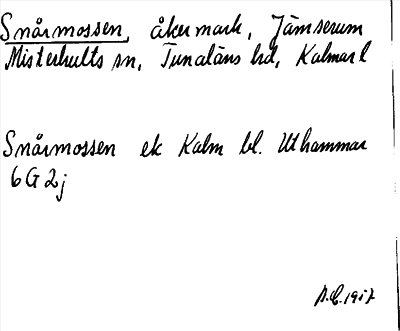 Snårmossen, åkermark, Jämserum
Misterhults sn, Tunaläns hd, Kalmar l
Snårmossen ek Kalm bl. Uthammar
6G2j
1957